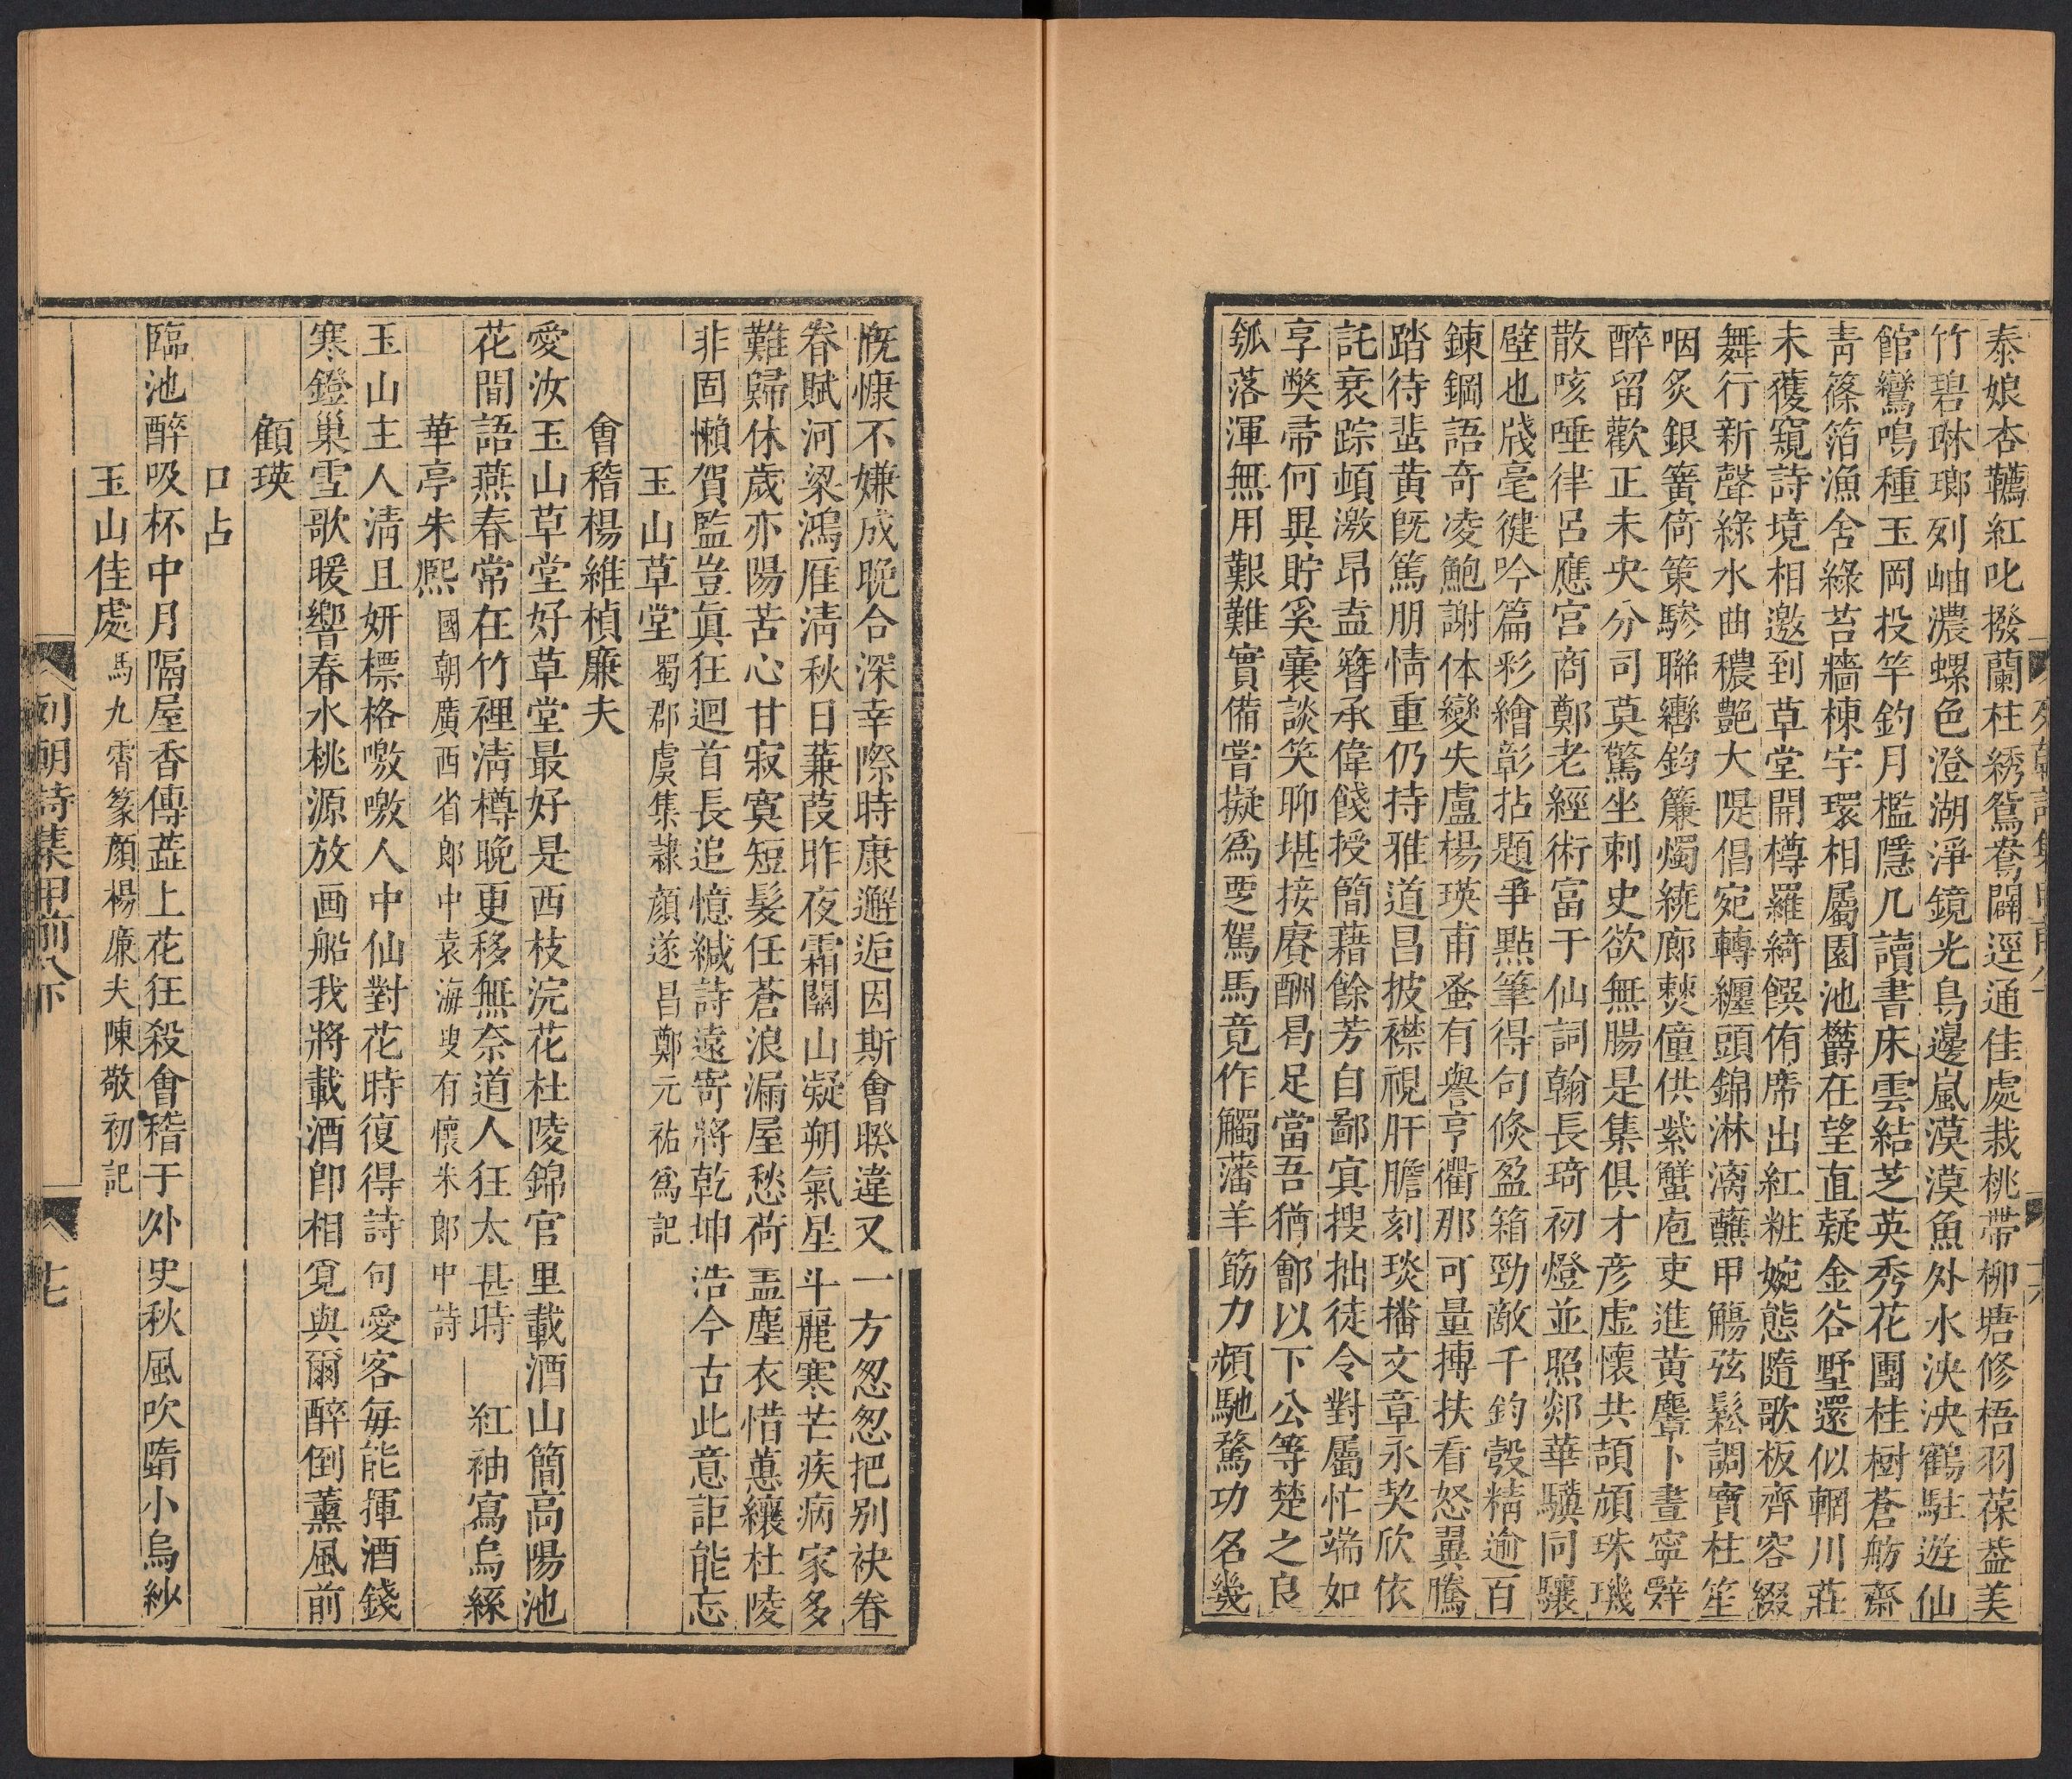 泰娘杏韉紅叱撥蘭柱綉鴛鴦闢逕通佳處栽桃帶柳塘修梧羽葆葢美
竹碧琳瑯列岫濃螺色澄湖淨鏡光鳥邊嵐漠漠魚外水泱泱鶴駐遊仙
館鸞鳴種玉岡投竿釣月檻隱几讀書床雲結芝英秀花團桂樹蒼舫齋
青篠箔漁舍綠苔牆棟宇環相屬園池欝在望直疑金谷墅還似輞川莊
未獲窺詩境相邀到草堂開樽羅綺饌侑席出紅粧婉態隨歌板齊容綴
舞行新聲綠水曲穠艷大隄倡宛轉纏頭錦淋漓蘸甲觴弦鬆調寶柱笙
咽炙銀簧倚策驂聯轡鈞簾燭繞廊爇僮供紫蟹庖吏進黄麞卜晝寧辤
醉留歡正未央分司莫驚坐刺史欲無腸是集俱才彦虚懷共頡頏珠璣
散咳唾律呂應宮商鄭老經術富于仙詞翰長琦初燈並照郯華驥同驤
壁也牋毫徤吟篇彩繪彰拈題爭點筆得句倐盈箱勁敵千鈞彀精逾百
鍊鋼語奇凌鮑謝体變失盧楊瑛甫蚤有譽亨衢那可量摶扶看怒翼騰
踏待蜚黄旣篤朋情重仍持雅道昌披襟視肝膽刻琰播文章永契欣依
託衰踪頓激昂盍簪承偉餞授簡藉餘芳自鄙㝠搜拙徒令對屬忙端如
享獘帚何異貯奚囊談笑聊堪接賡酬曷足當吾猶鄶以下公等楚之良
瓠落渾無用艱難實備嘗擬爲要駕馬竟作觸藩羊筋力頻馳騖功名㡬
慨慷不嫌成晚合深幸際時康邂逅因斯會睽違又一方怱怱把别袂眷
眷賦河梁鴻雁淸秋日蒹葭昨夜霜關山凝朔氣星斗麗寒芒疾病家多
難歸休歲亦陽苦心甘寂寞短髮任蒼浪漏屋愁荷盂塵衣惜蕙纕杜陵
非固懶賀監豈眞狂迴首長追憶緘詩遠寄將乾坤浩今古此意詎能忘
玉山草堂蜀郡虞集隷顔遂昌鄭元祐爲記
會稽楊維楨廉夫
愛汝玉山草堂好草堂最好是西枝浣花杜陵錦官里載酒山簡高陽池
花間語燕春常在竹裡淸樽晚更移無奈道人狂太甚時 紅袖寫烏絲
華亭朱熙國朝廣西省郎中袁海叟有懷朱郎中詩
玉山主人淸且妍標格噭噭人中仙對花時復得詩句愛客每能揮酒錢
寒鐙巢雪歌暖響春水桃源放画船我將載酒卽相覓與爾醉倒薰風前
顧瑛
口占
臨池醉吸杯中月隔屋香傳蕋上花狂殺會稽于外史秋風吹墮小烏紗
玉山佳處馬九霄篆顔楊廉夫陳敬初記
列朝詩集甲前八下 十七